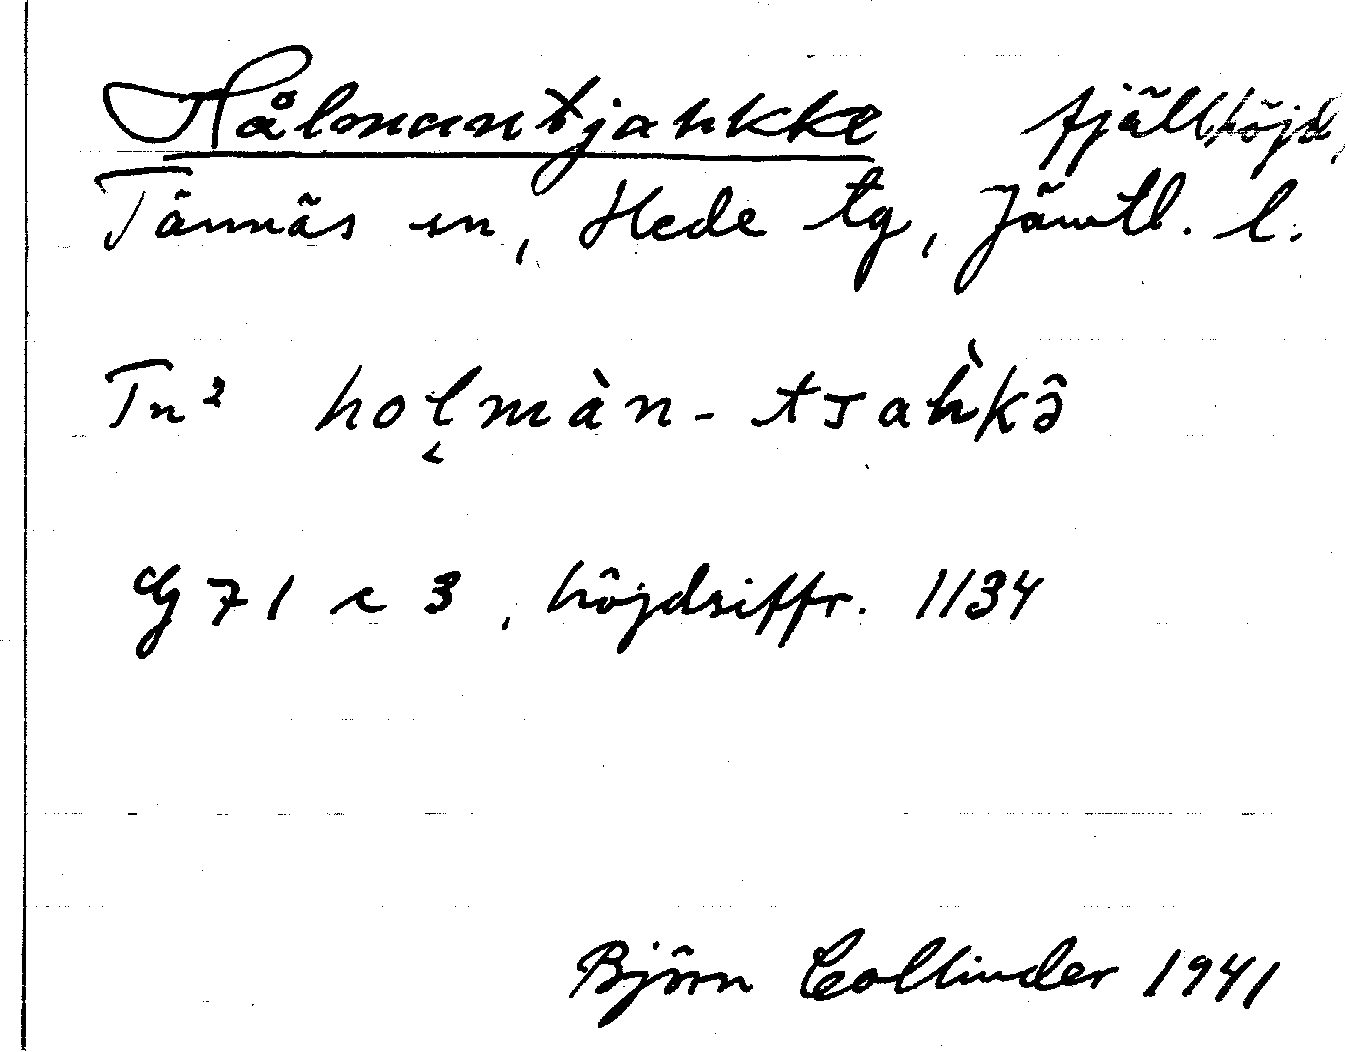 Hålmantjahkke fjällhöjd,
Tännäs sn, Hede tg, Jämtl. l.
Tn² hol̬màn-tsàhkə̂
G 71 c 3, höjdsiffr. 1134
Björn Collinder 1941